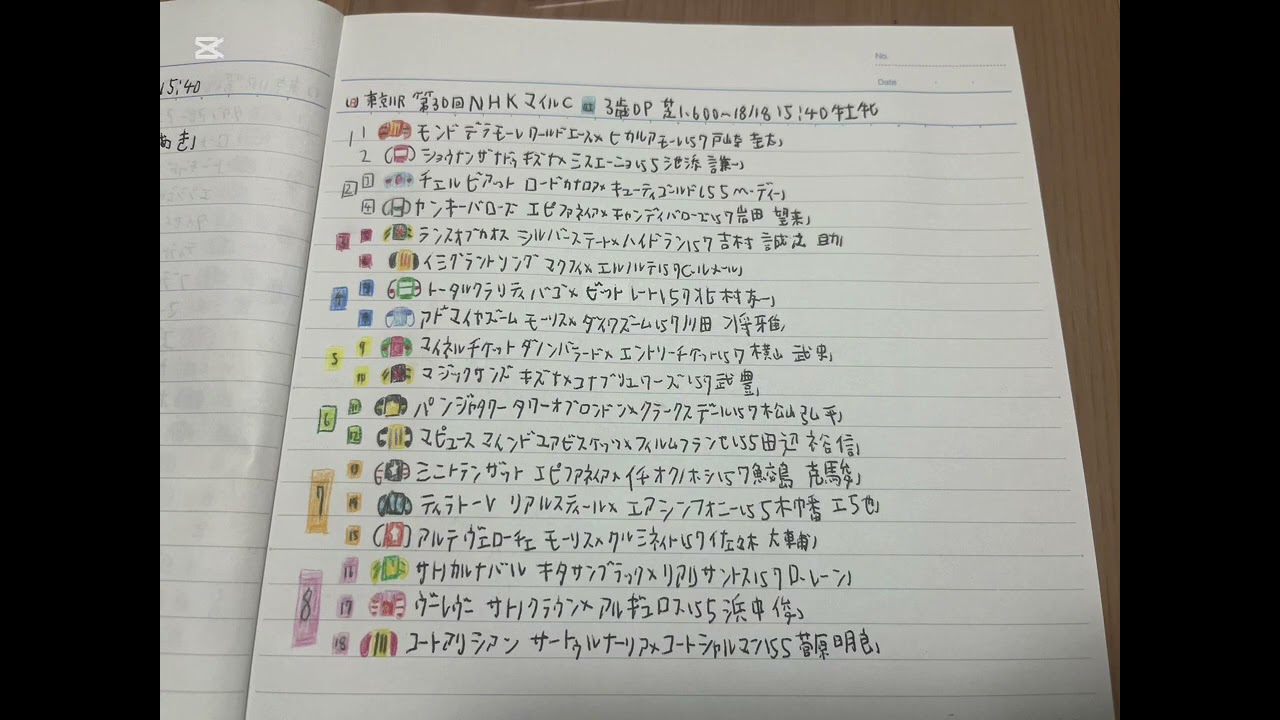 15:40
No.
Date
東京11R 第30回NHKマイルC G1 3歳OP 芝1.600m 18/18 15:40 牡牝
1 1 モンド デラモーレ ワールドエース×ヒカルアモーレ 57 戸崎 圭太
2 ショウナンザナドゥ キズナ×ミスエーニョ 55 池添 謙一
2 3 チェルビアット ロードカナロア×キューティゴールド 55 M・デー
4 ヤンキーバローズ エピファネイア×キャンディバローズ 57 岩田 望来
3 5 ランスオブカオス シルバーステート×ハイドラン 57 吉村 誠之助
6 イミグラントソング マクフィ×エルノルテ 57 C・ルメール
4 7 トータルクラリティ バゴ×ビットレート 57 北村友一
8 アドマイヤズーム モーリス×ダイワズーム 57 川田 将雅
5 9 マイネルチケット ダノンバラード×エントリーチケット 57 横山 武史
10 マジックサンズ キズナ×コナブリュワーズ 57 武 豊
6 11 パンジャタワー タワーオブロンドン×クラークスデール 57 松山 弘平
12 マピュース マインドユアビスケッツ×フィルムフランセ 55 田辺 裕信
7 13 ミニトランザット エピファネイア×イチオクノホシ 57 鮫島 克駿
14 ティラトーレ リアルスティール×エアシンフォニー 55 木幡 巧也
15 アルテヴェローチェ モーリス×クルミネイト 57 佐々木 大輔
8 16 サトノカルナバル キタサンブラック×リアリサントス 57 D・レーン
17 ヴーレヴー サトノクラウン×アルギュロス 55 浜中 俊
18 コートアリシアン サートゥルナーリア×コートシャルマン 55 菅原明良